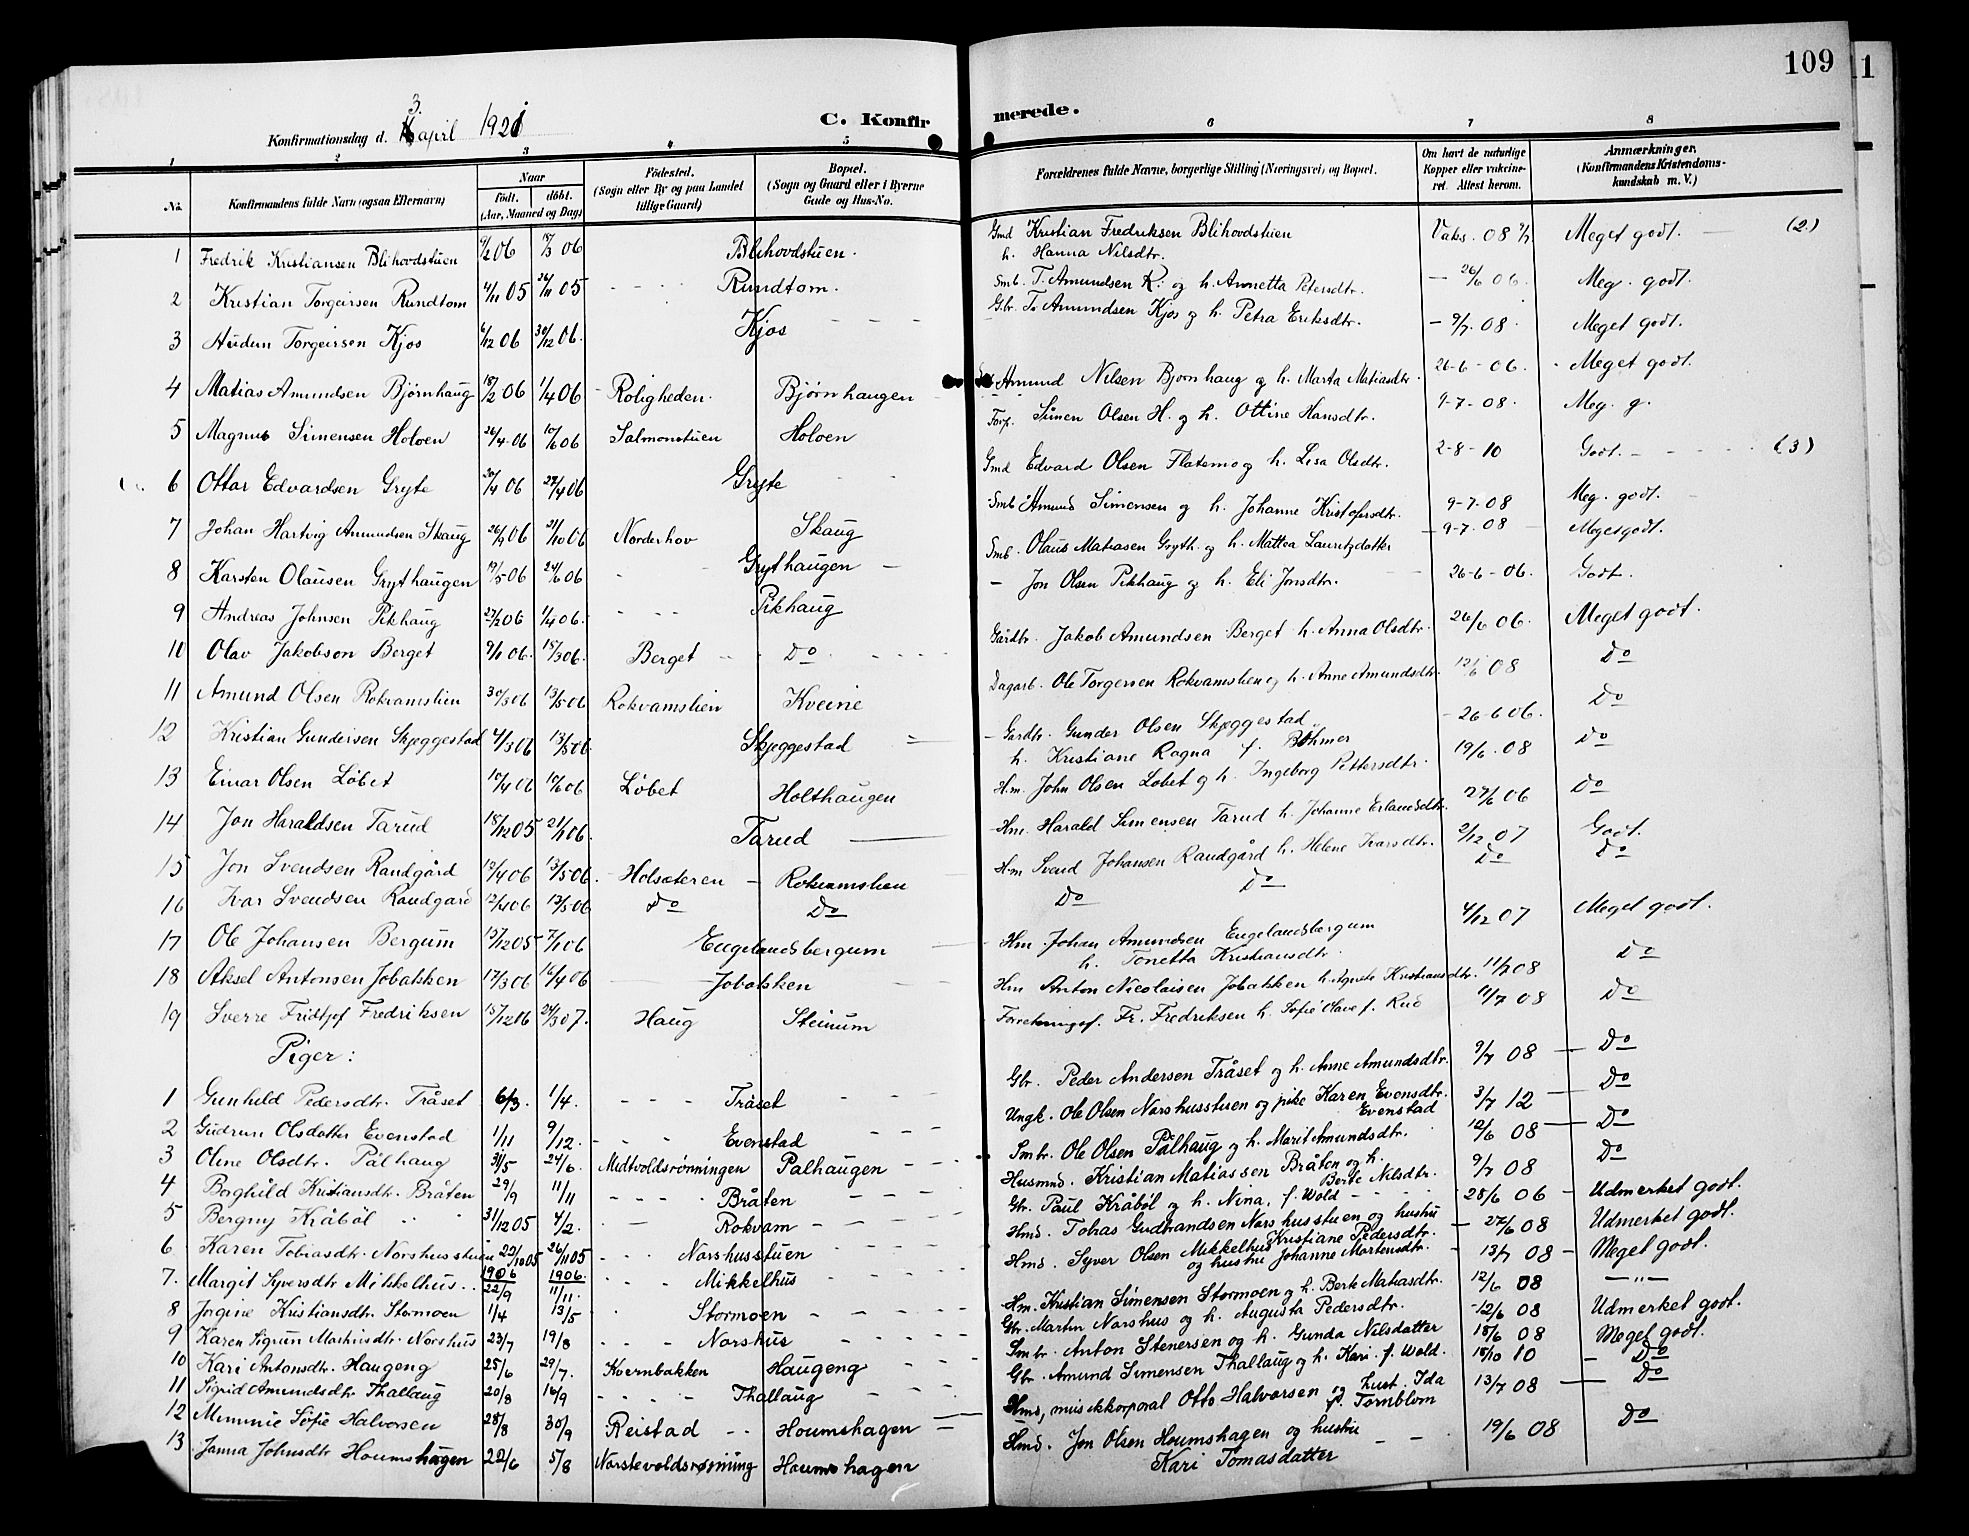 109
11
Konfirmationsdag d. 3. april 1921
C. Konfirmerede.
1 2 3 4 5 6 7 8
No.
Konfirmandens fulde Navn (ogsaa Efternavn)
Naar
født. døbt.
(Aar, Maaned og Dag)
Fødested.
(Sogn eller By og paa Landet tillige Gaard)
Bopæl.
(Sogn og Gaard eller i Byerne Gade og Hus-No.
Forældrenes fulde Navne, borgerlige Stilling (Næringsvei) og Bopæl.
Om havt de naturlige Kopper eller vakcineret. Attest herom.
Anmærkninger.
(Konfirmandens Kristendomskundskab m. V.)
1 Fredrik Kristiansen Blihovdstuen 9/2 06 18/3 06 Blihovdstuen. Gmd Kristian Fredriksen Blihovdstuen Vaks. 08 9/7 Meget godt. (2)
h. Hanna Nilsdtr.
2 Kristian Torgeirsen Rundtom 4/11 05 26/11 05 Rundtom. Smb. T. Amundsen R. og h. Annetta Petersdtr. 26/6 06. Meg. godt.
3 Audun Torgeirsen Kjos 6/12 06 30/12 06. Kjos Gbr. T. Amundsen Kjos og h. Petra Eriksdtr. 9/7. 08. Meget godt.
4 Matias Amundsen Bjørnhaug 18/2 06 1/4 06 Roligheden. Bjørnhaugen Amund Nilsen Bjørnhaug og h. Marta Matiasdtr. 26-6-06. Meget godt.
5 Magnus Simensen Holoen 26/4 06 10/6 06 Salmonstuen Holoen Torp. Simen Olsen H. og h. Ottine Hansdtr. 9-7-08. Meg. g.
6 Ottar Edvardsen Gryte 20/4 06 22/4 06 Gryte Gmd Edvard Olsen Flatemo og h. Lisa Olsdtr. 2-8-10 Godt. (3)
7 Johan Hartvig Amundsen Skaug 26/9 06 21/10 06 Norderhov Skaug Smb Amund Simensen og h. Johanne Kristofersdtr. 9-7-08 Meg. godt.
8 Karsten Olausen Grythaugen 19/5 06 24/6 06 Grythaugen Smb. Olaus Matiasen Gryth. og h. Mattea Lauritzdatter 9-7-08 Megetgodt.
9 Andreas Johnsen Pikhaug 27/2 06 1/4 06. Pikhaug Jon Olsen Pikhaug og h. Eli Jonsdtr. 26-6-06. Godt.
10 Olav Jakobson Berget 9/1 06. 15/3 06. Berget Do Gårdbr. Jakob Amundsen Berget h. Anna Olsdtr. 26/6 06. Meget godt.
11 Amund Olsen Rokvamslien 30/3 06 13/5 06 Rokvamslien Kveine Dagarb. Ole Torgersen Rokvamslien og h. Anne Amundsdtr. 12/6 08 Do
12 Kristian Gundersen Skjeggestad 4/3 06 13/5 06. Skjeggestad Gardbr. Gunder Olsen Skjeggestad 26-6 06. Do
h. Kristiane Ragna f. Bøhmer
13 Einar Olsen Løbet 10/4 06 10/6 06 Løbet Holthaugen Hm. John Olsen Løbet og h. Ingeborg Pettersdtr. 19/6. 08 Do
14 Jon Haraldsen Tarud 18/12 05 21/1 06. Tarud Hm. Harald Simensen Tarud h. Johanne Erlandsdtr. 27/6 06 Do
15 Jon Svendsen Randgård 12/4 06 13/5 06. Holsæteren Rokvamslien Hm Svend Johansen Randgård h. Helene Ivarsdtr. 2/12 07 Godt.
16 Ivar Svendsen Randgård 12/4 06 13/5 06 Do Do Do Do Do Do
17 Ole Johansen Bergum 15/12 05 7/1 06 Engelandsbergum Hm. Johan Amundsen Engelandsbergum 4/12 07 Meget godt.
h. Tonetta Kristiansdtr.
18 Aksel Antonsen Jobakken 17/3 06 16/4 06 Jobakken Hm Anton Nicolaisen Jobakken h. Agnete Kristiansdtr. 11/7 08 Do
19 Sverre Fridtjof Fredriksen 15/12 06 24/3 07. Haug Steinum Forretningsf. Fr. Fredriksen h. Sofie Have f. Rud 11/7 08 Do
Piger:
1 Gunhild Pedersdtr. Tråset 6/3. 1/4. Tråset Gbr. Peder Andersen Tråset og h. Anne Amundsdtr. 9/7 08 Do
2 Gudrun Olsdatter Evenstad 1/11 9/12. Evenstad Ungk. Ole Olsen Norshusstuen og pike Karen Evensdtr. Evenstad 3/7 12 Do
3 Oline Olsdtr. Pålhaug 31/5 24/6. Midtvoldsrønningen Pålhaugen Smbr. Ole Olsen Pålhaug og h. Marit Amundsdtr. 12/6 08 Do
4 Borghild Kristiansdtr. Bråten 29/9 11/11 Bråten Husmnd. Kristian Matiassen Bråten og h. Berte Nilsdtr. 9/7 08 Do
5 Bergny Kråbøl 31/12 05 4/2. Rokvam Gbr. Paul Kråbøl og h. Nina, f. Wold 28/6 06 Udmerket godt.
6 Karen Tobiasdtr. Norshusstuen 22/10 05 26/11 05 Norshusstuen Hmd. Tobias Gudbrandsen Norshusstuen og hustru Kristiane Pedersdtr. 27/6 08 Udmerket godt.
7. Margit Syversdtr Mikkelhus.. 1906 22/9 1906. 11/11. Mikkelhus Hmd. Syver Olsen Mikkelhus og hustru Johanne Mortensdtr. 13/7 08 Meget godt.
8 Jørgine Kristiansdtr. Stormoen 1/4 13/5 Stormoen Hm. Kristian Simensen Stormoen og h. Berte Matiasdtr. 12/6 08 —"—
9 Karen Sigrun Martinsdtr. Norshus 23/7 19/8 Norshus Gbr. Martin Norshus og h. Augusta Pedersdtr. 12/6 08 Udmerket godt.
10 Kari Antonsdtr. Haugeng 25/6 29/7. Kvernbakken Haugeng Smbr. Anton Stenersen og h. Gunda Nilsdatter 18/6 08 Meget godt.
11 Sigrid Amundsdtr Thallaug 20/8 16/9 Thallaug Gbr. Amund Simensen Thallaug og h. Kari f. Wold. 18/10 10 Do
12 Mimmie Sofie Halvorsen 28/8 30/9 Reistad Houmshagen Hmd, musikkorporal Otto Halvorsen og hust. Ida f. Tornblom 13/7 08 Do
13 Janna Johnsdtr Houmshagen 22/6 5/8 Norstevoldsrønning Houmshagen Hmd. Jon Olsen Houmshagen og hustru 19/6 08 Do
Kari Tomasdatter